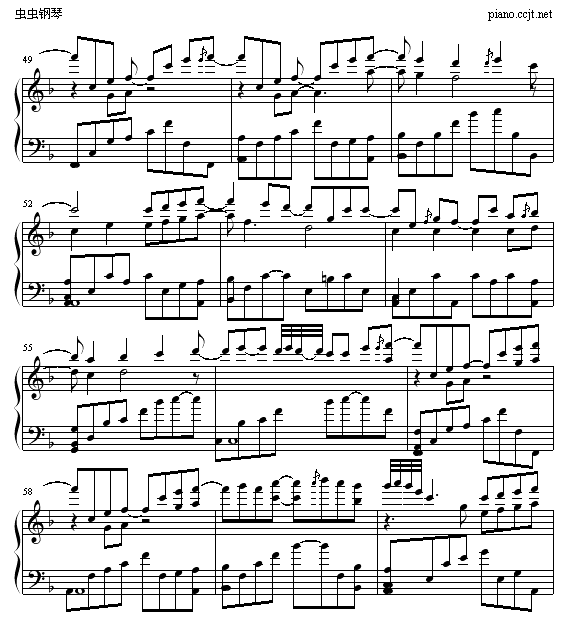 虫虫钢琴
piano.ccjt.net
49
52
55
58